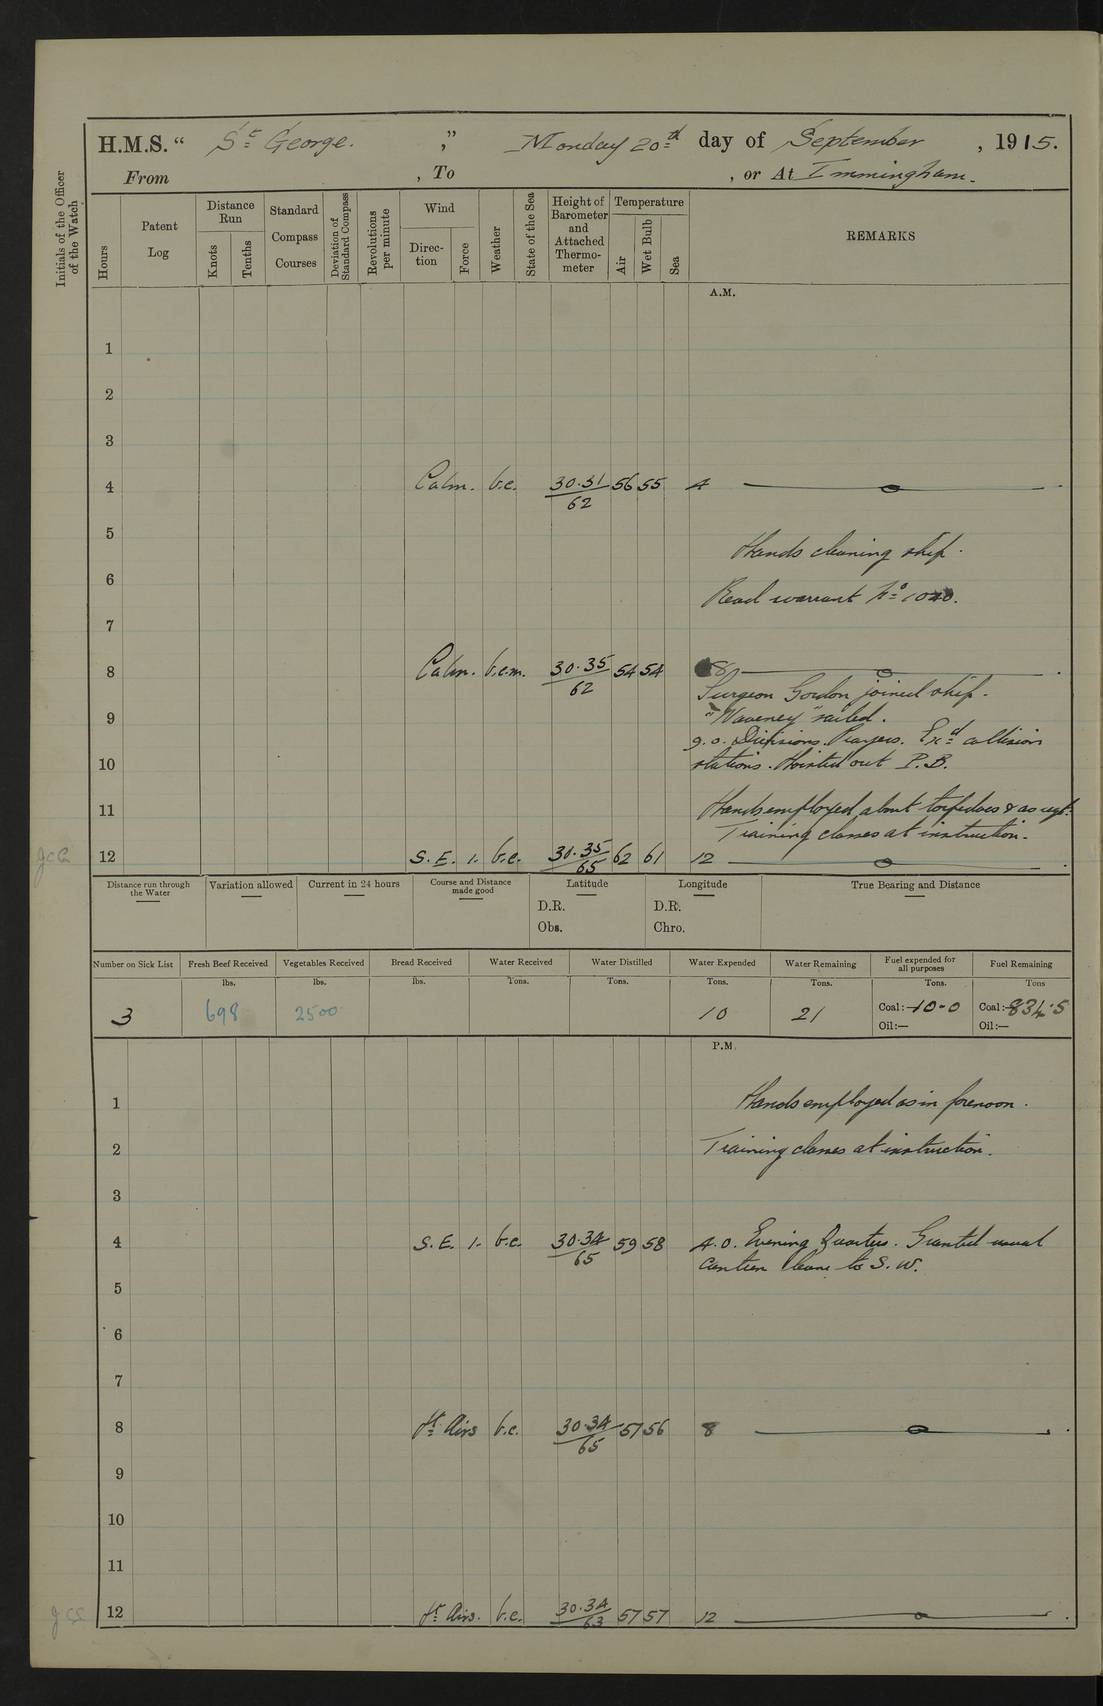 H.M.S. " St George. ", Monday 20th day of September, 1915.
From , To , or At Immingham.
Initials of the Officer of the Watch
Hours
Patent Log
Distance Run
Knots
Tenths
Standard Compass Courses
Deviation of Standard Compass
Revolutions per minute
Wind
Direc-tion
Force
Weather
State of the Sea
Height of Barometer and Attached Thermo-meter
Temperature
Air
Wet Bulb
Sea
REMARKS
A.M.
1
2
3
4 Calm. b.c. 30.31/62 56 55 4
5
Hands cleaning ship.
6
Read warrant No
7
8 Calm. b.c.m. 30.35/62 54 54 8
Surgeon Gordon joined ship.
"Waveney" sailed.
9
9.0. Divisions. Prayers. Exd collision
10 stations. Hoisted out P.B.
11 Hands employed about torpedoes & as reqd.
Training classes at instruction.
12 S.E. 1. b.c. 30.35/65 62 61 12
Distance run through the Water
Variation allowed
Current in 24 hours
Course and Distance made good
Latitude
D.R.
Obs.
Longitude
D.R.
Chro.
True Bearing and Distance
Number on Sick List
Fresh Beef Received
Vegetables Received
Bread Received
Water Received
Water Distilled
Water Expended
Water Remaining
Fuel expended for all purposes
Fuel Remaining
lbs. lbs. lbs. Tons. Tons. Tons. Tons. Tons. Tons
3 698 2500 10 21 Coal:-10-0 Coal:-834.5
Oil:— Oil:—
P.M.
1 Hands employed as in forenoon.
2 Training classes at instruction.
3
4 S.E. 1. b.c. 30.34/65 59 58 4.0. Evening Quarters. Granted usual
canteen leave to S.W.
5
6
7
8 Lt Airs b.c. 30.34/65 57 56 8
9
10
11
12 Lt Airs. b.c. 30.34/63 57 57 12